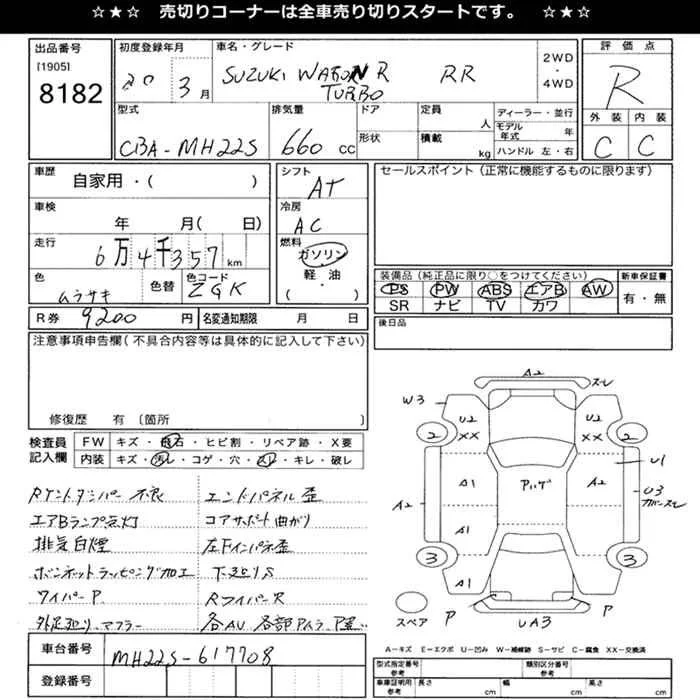 ☆★☆　売切りコーナーは全車売り切りスタートです。　☆★☆
出品番号
[1905]
8182
初度登録年月
20 3月
車名・グレード
SUZUKI WAGON R RR
TURBO
2WD
・
4WD
評価点
R
外装 内装
C C
型式
CBA-MH22S
排気量
660 cc
ドア
形状
定員
人
積載
kg
ディーラー・並行
モデル年式 年
ハンドル 左・右
車歴
自家用・( )
車検
年 月( 日)
走行
6万4千357km
色
ムラサキ
色替
色コード
ZGK
シフト
AT
冷房
AC
燃料
ガソリン
軽・油
( ・ )
セールスポイント(正常に機能するものに限ります)
装備品(純正品に限り○をつけてください)
PS PW ABS エアB AW
SR ナビ TV カワ
新車保証書
有・無
R券 9200 円
名変通知期限 月 日
後日品
注意事項申告欄(不具合内容等は具体的に記入して下さい)
修復歴 有 〔箇所
検査員
記入欄
FW キズ・飛石・ヒビ割・リペア跡・X要
内装 キズ・汚レ・コゲ・穴・スレ・キレ・破レ
エンドパネル歪
エアBランプ点灯 コアサポート曲がり
排気白煙 左右インパネ歪
ボンネットラッピング加工 下廻りS
ワイパーP. RワイパーR
A2
スレ
W3
U2
XX
U2
XX
2
2
A1
A2
U1
A2
U3
A1
3
3
A1
スペア
P
UA3
P
A=キズ E=エクボ U=凹み W=補修跡 S=サビ C=腐食 XX=交換済
車台番号
MH22S-617708
登録番号
型式指定番号
参考
類別区分番号
参考
車庫証明用
参考
長さ cm
幅 cm
高さ cm